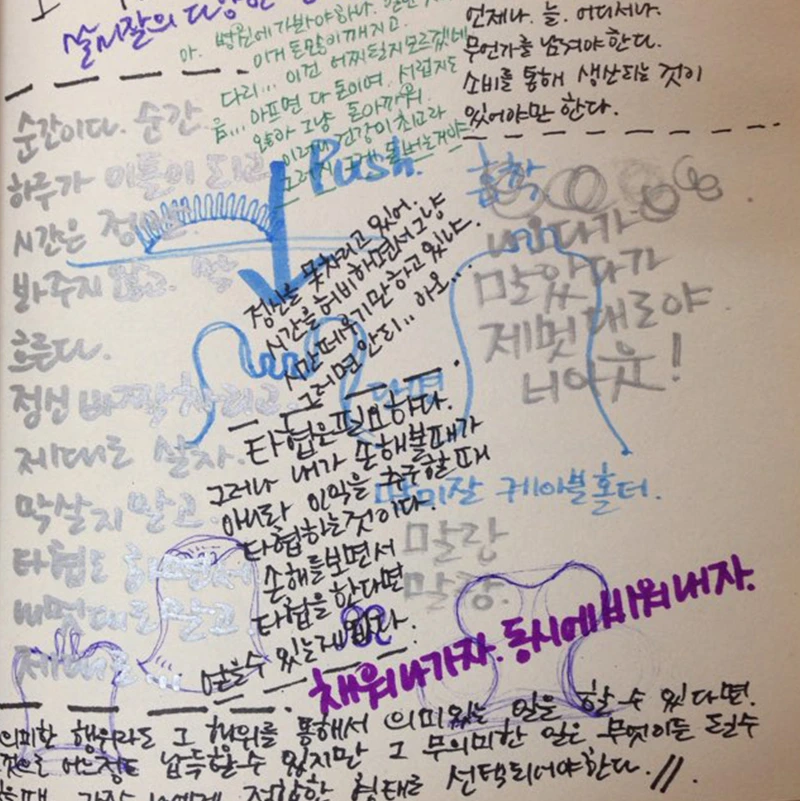 살시잘의 다양한
아. 병원에 가봐야하나.
이거 돈모이 깨지고.
다리... 이건 어찌될지모르겠네
음... 아프면 다 돈이여. 서럽지도
않아 그냥 돈아까워.
이러며 건강이 최고라
그러지 그게 돈버는거야
언제나. 늘. 어디서나.
무언가를 남겨야한다.
소비를 통해 생산되는 것이
있어야만 한다.
순간이다. 순간
하루가 이틀이 되고
시간은
봐주지 않고.
흐른다.
정신 바짝차리고
제대로 살자.
막살지 말고.
타협도 하면서
내멋대로말고
제대로...
Push.
흡착
나오다가
말았다가
제멋대로야
너야윤!
정신을 못차리고 있어.
시간을 허비하면서 그냥
시간 떼우기만 하고 있냐.
그러면 안되.. 아오...
단면
타협은필요하다.
그러나 내가 손해볼때가
아니라 이익을 추구할때
타협하는것이다.
손해를보면서
타협을 한다면
얻을수 있는게 없다.
말미잘 케이블홀더.
말랑
말랑.
채워나가자. 동시에 비워내자.
의미한 행위라도 그 행위를 통해서 의미있는 일을 할 수 있다면.
것으로 어느정도 납득할수 있지만 그 무의미한 일은 무엇이든 될수
가장 나에게 적합한 형태로 선택되어야한다.